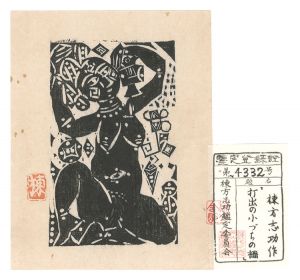 棟
鑑定登録証
第4332号
題名
棟方志功作
打出の小づちの柵
棟方志功鑑定委員会